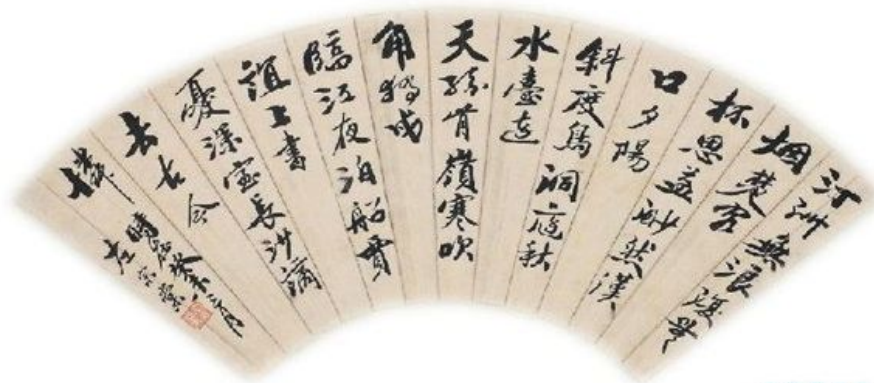 汀洲無浪復無
烟楚客
相思益渺然漢
口夕陽
斜度鳥洞庭秋
水遠
天孤背嶺寒吹
角獨戍
臨江夜泊船賈
誼上書
憂漢室長沙謫
去古今
憐
時在癸未三月
左宗棠